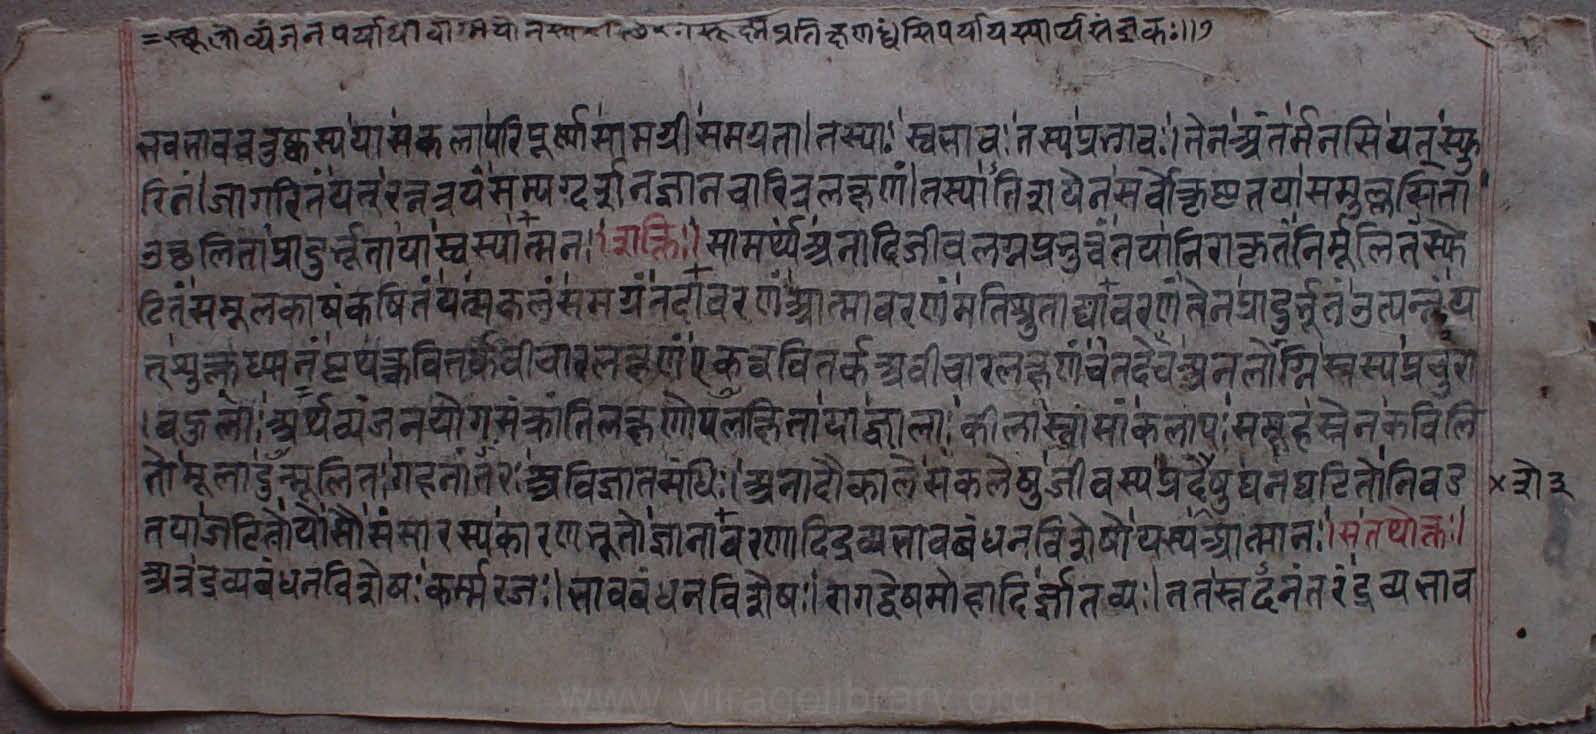 =स्थूलो व्यंजनपर्यायो वाग्गम्यो नस्वरः स्थिरः सूक्ष्मः प्रतिक्षणध्वंसि पर्यायस्यार्थसंज्ञकः॥१
भवभावचतुष्कस्य या सकला परिपूर्णा सामग्री समग्रता।तस्याः स्वभावः तस्य प्रभावः।तेन अंतर्मनसि यत् स्फु
रितं।जागरितं यत् रत्नत्रयं सम्यग्दर्शनज्ञानचारित्रलक्षणं।तस्यातिशयेन सर्वोत्कृष्टतया समुल्लसिता
उछलिता प्रादुर्भूता या स्वस्यात्मनः।शक्तिः।सामर्थ्यं अनादिजीवलग्नप्रभुत्वं तया निराकृतं निर्मूलितं स्फे
टितं समूलकाषं कषितं यत् सकलं समग्रं तदावरणं आत्मावरणं मतिश्रुताद्यावरणं तेन प्रादुर्भूतं उत्पन्नं य
त् शुक्लध्यानं पृथक्त्ववितर्कवीचारलक्षणं एकत्ववितर्कअवीचारलक्षणं चेतदेव अनलोग्निस्तस्य प्रचुरा
।बहुला।अर्थव्यंजनयोगसंक्रांतिलक्षणोपलक्षिता या ज्वाला कीला स्तासां कलापः समूहस्तेन कवलि
तो मूलादुन्मूलितः गहनांतरः अविज्ञातसंधिः।अनादौ काले सकलेषु जीवस्य प्रदेशेषु घनघटितो निवड
× शे ३
तया जटितो योसौ संसारस्य कारणभूतो ज्ञानावरणादिद्रव्यभावबंधनविशेषो यस्य आत्मनः।स तथोक्तः।
अत्र द्रव्यबंधनविशेषः कर्म्मरजः।भावबंधनविशेषः।रागद्वेषमोहादिर्ज्ञातव्यः।ततस्तदनंतरं द्रव्यभाव
www.vitragelibrary.org